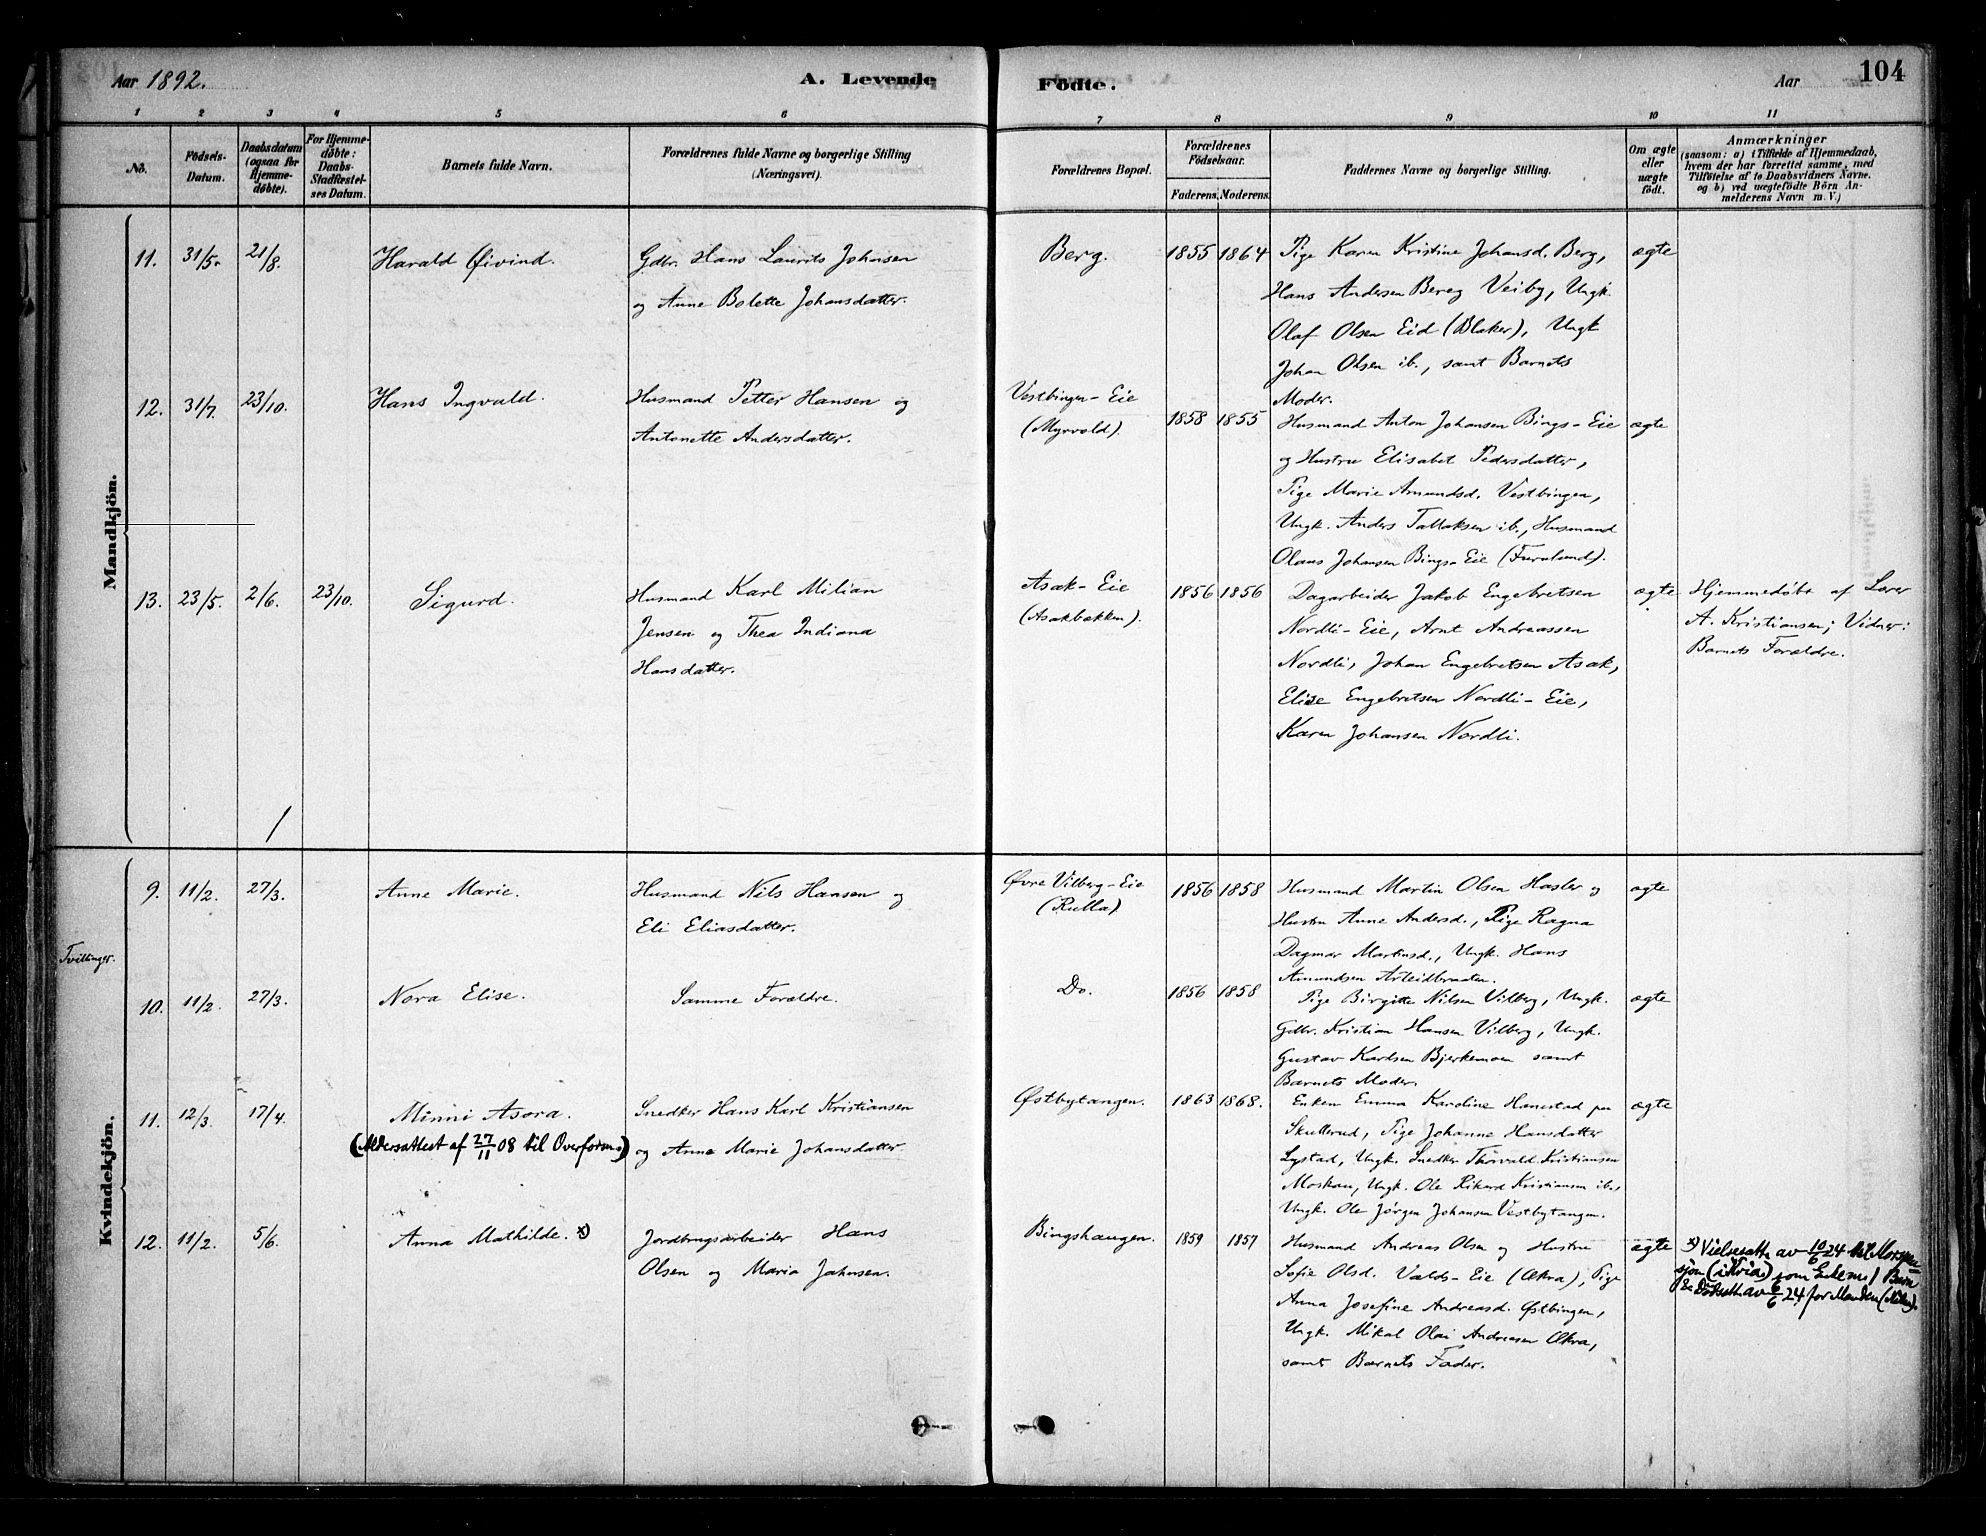 Aar 1892.
A. Levende
Födte.
Aar
104
1 2 3 4 5 6 7 8 9 10 11
No.
Födsels-Datum.
Daabsdatum (ogsaa for Hjemme-døbte).
For Hjemme-døbte: Daabs-Stadfæstelses Datum.
Barnets fulde Navn.
Forældrenes fulde Navne og borgerlige Stilling (Næringsvei).
Forældrenes Bopæl.
Forældrenes Fødselsaar.
Faderens. Moderens.
Faddernes Navne og borgerlige Stilling.
Om ægte eller uægte födt.
Anmærkninger
(saasom: a) i Tilfælde af Hjemmedaab,
hvem der har forrettet samme, med
Tilföielse af to Daabsvidners Navne.
og b) ved uægtefödte Börn An-
melderens Navn m. V.)
Mandkjön.
11. 31/5. 21/8. Harald Øivind. Gdbr. Hans Laurits Johnsen
og Anne Bolette Johansdatter.
Berg. 1855 1864
Pige Karen Kristine Johansd. Berg,
Hans Andersen Berg Veiby, Ungk.
Olaf Olsen Eid (Blaker), Ungk
Johan Olsen ib., samt Barnets
Moder.
ægte
12. 31/7. 23/10. Hans Ingvald. Husmand Petter Hansen og
Antonette Andersdatter.
Vestbingen-Eie
(Myrvold).
1858 1855
Husmand Anton Johansen Bings-Eie
og Hustru Elisabet Pedersdatter,
Pige Marie Amundsd. Vestbingen,
Ungk. Anders Tallaksen ib., Husmand
Olaus Johansen Bings-Eie (Furulund).
ægte
13. 23/5. 2/6. 23/10. Sigurd. Husmand Karl Milian
Jensen og Thea Indiana
Hansdatter.
Asak-Eie
(Asakbakken).
1856 1856
Dagarbeider Jakob Engebretsen
Nordli-Eie, Arnt Andreassen
Nordli, Johan Engebretsen Asak,
Elise Engebretsen Nordli-Eie,
Karen Johansen Nordli.
ægte
Hjemmedøbt af Lærer
A. Kristiansen; Vidner:
Barnets Forældre.
Kvindekjön.
9. 11/2. 27/3. Anne Marie. Husmand Nils Hansen og
Eli Eliasdatter.
Øvre Vilberg-Eie
(Rulla)
1856 1858
Husmand Martin Olsen Hasler og
Hustru Anne Andersd., Pige Ragna
Dagmar Martinsd., Ungk. Hans
Amundsen
ægte
Tvillinger.
10. 11/2. 27/3. Nora Elise. Samme Forældre.
Do. 1856 1858
Pige Birgitte Nilsen Vilberg, Ungk.
Gdbr. Kristian Hansen Vilberg, Ungk.
Gustav Karlsen Bjerkemoen samt
Barnets Moder.
ægte
11. 12/3. 17/4. Minni Asora. Snedker Hans Karl Kristiansen
(Aldersattest af 27/11 08 til Overform.) og Anne Marie Johansdatter.
Østbytangen. 1863 1868.
Enken Emma Karoline Hanestad pa
Skullerud, Pige Johanne Hansdatter
Lystad, Ungk. Snedker Thorvald Kristiansen
Moskau, Ungk. Ole Rikard Kristiansen ib.,
Ungk. Ole Jørgen Johansen Vestbytangen.
ægte
12. 11/2. 5/6. Anna Mathilde. x) Jordbrugsarbeider Hans
Olsen og Maria Johnsen.
Bingshaugen. 1859 1857
Husmand Andreas Olsen og Hustru
Sofie Olsd. Valds-Eie (Økra), Pige
Anna Josefine Andreasd. Østbingen,
Ungk. Mikal Olai Andreasen Økra,
samt Barnets Fader.
ægte
x) Vielsesatt. av 10/6 24 til Morspen-
sjon som
av 6/6 24 for Manden